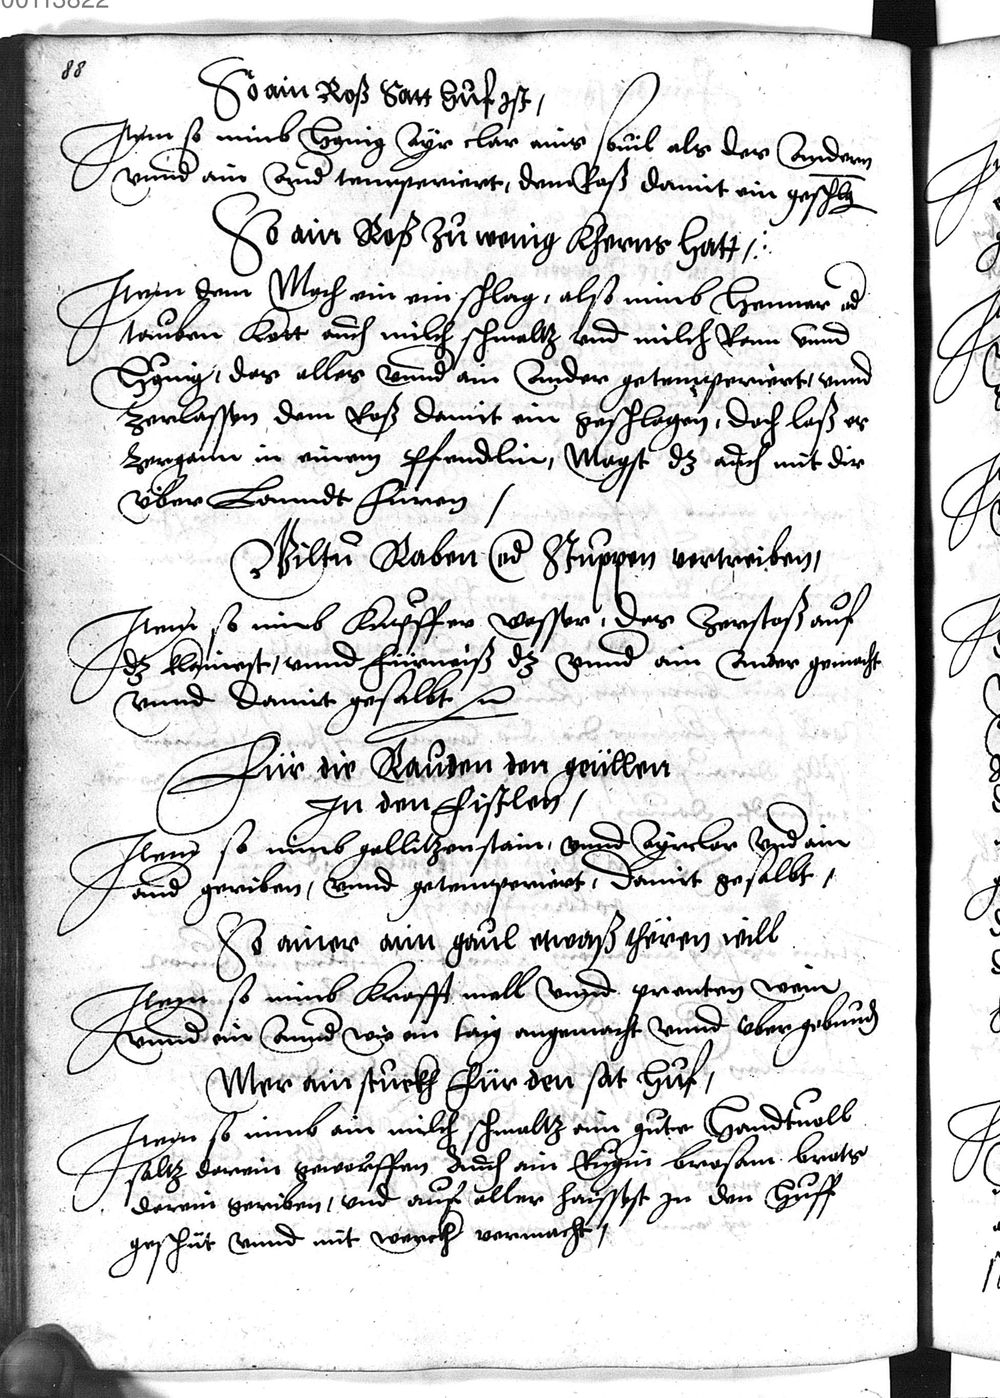 00113822
88
So ain Roß Satt huf ist /
Item so nimb Hönig Ayr clar ains souil als des Andern
vnnd ain Annd temperiert, dem Roß damit ein geschlag
So ain Roß Zu wenig Kherns hatt /.
Item dem Mach ein ein schlag, also nimb Hennar od
tauben Kott auch milch schmaltz vnd milch Ram vnnd
Hönig, das alles vnnd ain Ander getemperiert, vnnd
zerlassen dem Roß damit ein geschlagen, doch laß es
zergann in einem Pfendlin, Magst dz auch mit dir
über Lanndt füren /
Wiltu Raben od Struppen vertreiben,
Item so nimb Kupffer wasser, das zerstoß auf
dz klainest, vnnd fürneiß dz vnnd ain ander gemacht
vnnd damit gesalbt
Für die Rauden den geüllen
In den fistlen /
Item so nimb gallitzenstain, vnnd Ayrclar vnd ain
and geriben, vnnd getemperiert, damit gesalbt,
So ainer aim gaul etwaß will
Item so nimb Krafft mell vnnd prenten wein
vnnd ein Annd wie ein taig angemacht vnnd übergebund
Mer ain stuckh für den sat huf,
Item so nimb ain milch schmaltz ain gute Handtuoll
saltz darein geworffen Auch ain Rugin brosam brots
darein geriben, vnd auf aller haissest In den Huff
geschüt vnnd mit werch vermacht,